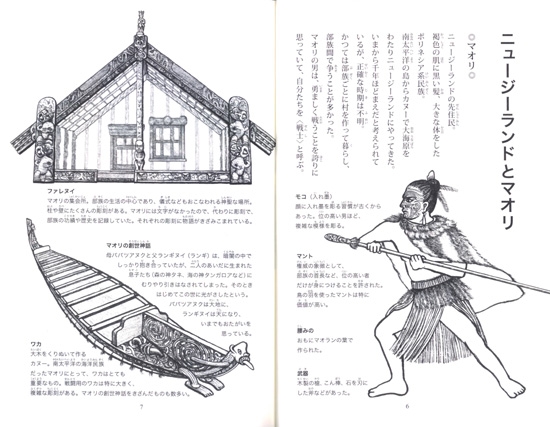 ニュージーランドとマオリ
◎マオリ◎
ニュージーランドの先住民。
褐色の肌に黒い髪、大きな体をした
ポリネシア系民族。
南太平洋の島からカヌーで大海原を
わたりニュージーランドにやってきた。
いまから千年ほどまえだと考えられて
いるが、正確な時期は不明。
かつては部族ごとに村を作って暮らし、
部族間で争うことが多かった。
マオリの男は、勇ましく戦うことを誇りに
思っていて、自分たちを〈戦士〉と呼ぶ。
モコ(入れ墨)
顔に入れ墨を彫る習慣が古くから
あった。位の高い男ほど、
複雑な模様を彫る。
マント
権威の象徴として、
部族の首長など、位の高い者
だけが身につけることを許された。
鳥の羽を使ったマントは特に
価値が高い。
腰みの
おもにマオランの葉で
作られた。
武器
木製の槍、こん棒、石を刃に
した斧などがあった。
6
ファレヌイ
マオリの集会所。部族の生活の中心であり、儀式などもおこなわれる神聖な場所。
柱や壁にたくさんの彫刻がある。マオリには文字がなかったので、代わりに彫刻で、
部族の功績や歴史を記録していた。それぞれの彫刻に物語がきざみこまれている。
マオリの創世神話
母パパツアヌクと父ランギヌイ(ランギ)は、暗闇の中で
しっかり抱き合っていたが、二人のあいだに生まれた
息子たち(森の神タネ、海の神タンガロアなど)に
むりやり引きはなされてしまった。そのとき
はじめてこの世に光がさしたという。
パパツアヌクは大地に、
ランギヌイは天になり、
いまでもおたがいを
思っている。
ワカ
大木をくりぬいて作る
カヌー。南太平洋の海洋民族
だったマオリにとって、ワカはとても
重要なもの。戦闘用のワカは特に大きく、
複雑な彫刻がある。マオリの創世神話をきざんだものも多い。
7